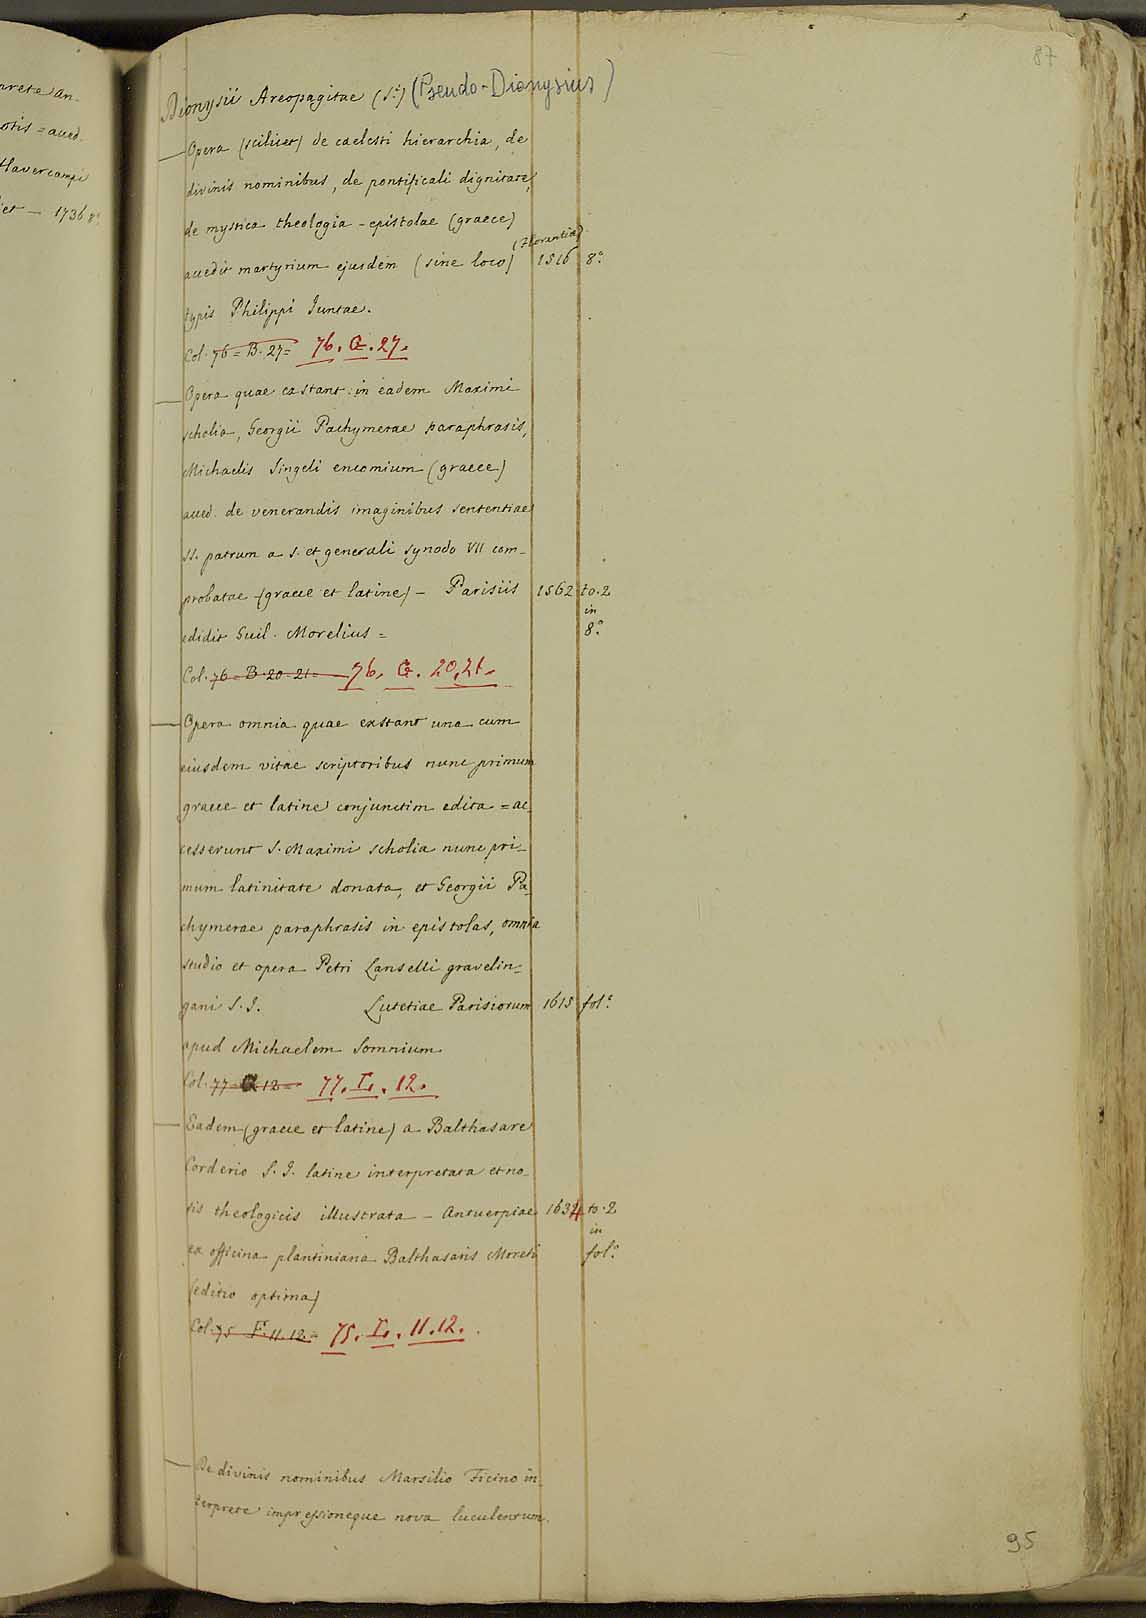 87
nrete an-
otis = acced.
Havercampi
et — 1736 8°
Dionysii Areopagitae (S.i) (Pseudo-Dionysius)
Opera (scilicet) de caelesti hierarchia, de
divinis nominibus, de pontificali dignitate,
de mystica theologia - epistolae (graece)
accedit martyrium ejusdem (sine loco) (Florentiae) 1516 8°
typis Philippi Juntae.
Col. 76 = B. 27 = 76. G. 27.
Opera quae extant: in eadem Maximi
scholia, Georgii Pachymerae paraphrasis,
Michaelis Singeli encomium (graece)
acced. de venerandis imaginibus sententiae
ss. patrum a s. et generali synodo VII com-
probatae (graece et latine) - Parisiis 1562 to. 2
in
edidit Guil. Morelius = 8°
Col. 76 = B. 20. 21 = 76. G. 20. 21.
Opera omnia quae exstant una cum
eiusdem vitae scriptoribus nunc primum
graece et latine conjunctim edita = ac-
cesserunt S. Maximi scholia nunc pri-
mum latinitate donata, et Georgii Pa-
chymerae paraphrasis in epistolas, omnia
studio et opera Petri Lanselli gravelin-
gani S. J. Lutetiae Parisiorum 1615 fol°
apud Michaelem Somnium
Col. 77 = 12 = 77. Γ. 12.
Eadem (graece et latine) a Balthasare
Corderio S. J. latine interpretata et no-
tis theologicis illustrata - Antuerpiae 1634 to. 2
in
ex officina plantiniana Balthasaris Moreti fol°
(editio optima)
Col. 75 F. 11. 12 = 75. Γ. 11. 12.
De divinis nominibus Marsilio Ficino in-
terprete impressioneque nova luculentum.
95